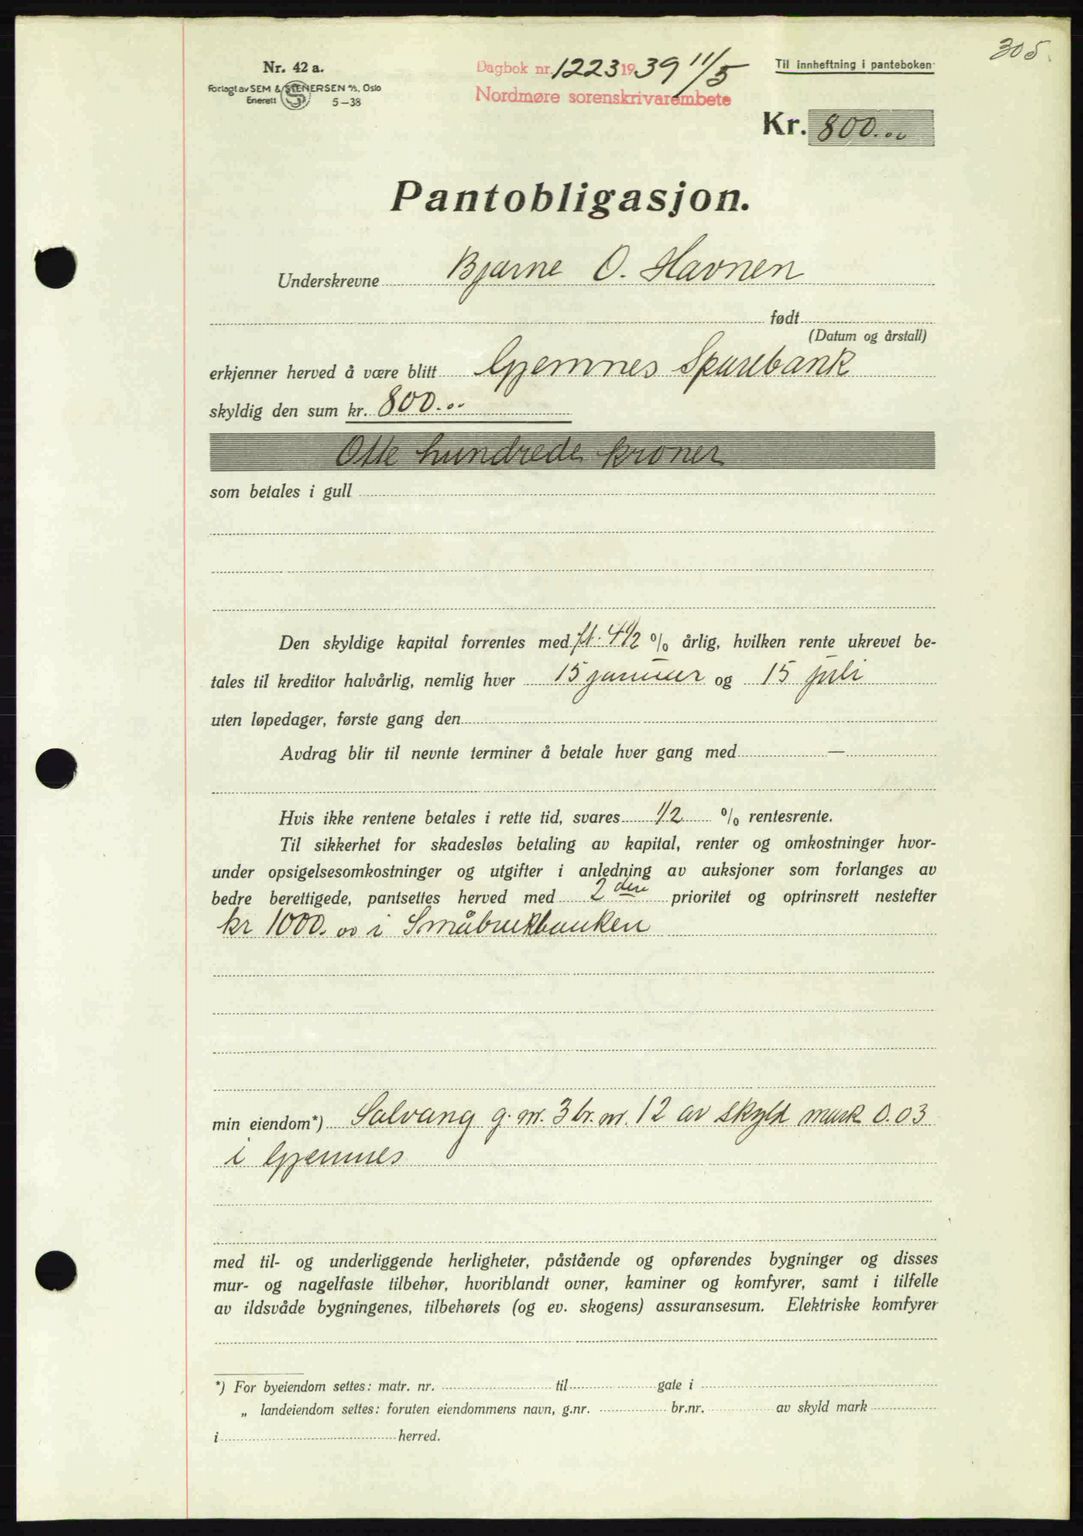 305.
Nr. 42 a.
Forlagt av SEM & STENERSEN A/S, Oslo
Enerett 5-38
Dagbok nr. 1223 1939 11/5
Nordmøre sorenskrivarembete
Til innheftning i panteboken
Kr. 800.00
Pantobligasjon.
Underskrevne Bjarne O. Havnen
født
(Datum og årstall)
erkjenner herved å være blitt Gjemnes Sparebank
skyldig den sum kr. 800.00
Otte hundrede kroner
som betales i gull
Den skyldige kapital forrentes med ft. 4 1/2 % årlig, hvilken rente ukrevet be-
tales til kreditor halvårlig, nemlig hver 15 januar og 15 juli
uten løpedager, første gang den
Avdrag blir til nevnte terminer å betale hver gang med —
Hvis ikke rentene betales i rette tid, svares 1/2 % rentesrente.
Til sikkerhet for skadesløs betaling av kapital, renter og omkostninger hvor-
under opsigelsesomkostninger og utgifter i anledning av auksjoner som forlanges av
bedre berettigede, pantsettes herved med 2den prioritet og optrinsrett nestefter
kr 1000.00 i Småbrukbanken
min eiendom*) Solvang g. nr. 3 br. nr. 12 av skyld mark 0.03
i Gjemnes
med til- og underliggende herligheter, påstående og opførendes bygninger og disses
mur- og nagelfaste tilbehør, hvoriblandt ovner, kaminer og komfyrer, samt i tilfelle
av ildsvåde bygningenes, tilbehørets (og ev. skogens) assuransesum. Elektriske komfyrer
*) For byeiendom settes: matr. nr. til gate i
„ landeiendom settes: foruten eiendommens navn, g.nr. br.nr. av skyld mark
i herred.